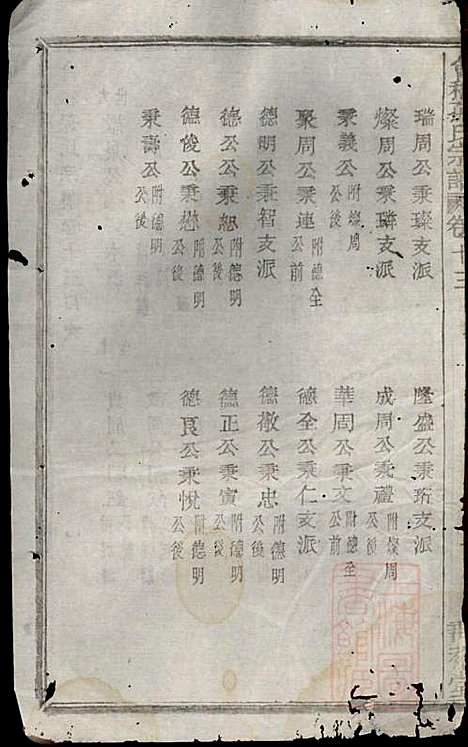 氏宗譜 卷十三
瑞周公秉璨支派
隆盛公秉珩支派
燦周公秉璘支派
成周公秉禮 附燦周公後
秉義公 附燦周公後
華周公秉文 附德全公前
聚周公秉連 附德全公前
德全公秉仁支派
德明公秉智支派
德敬公秉忠 附德明公後
德公公秉恕 附德明公後
德正公秉寅 附德明公後
德俊公秉懋 附德明公後
德良公秉悅 附德明公後
秉壽公 附德明公後